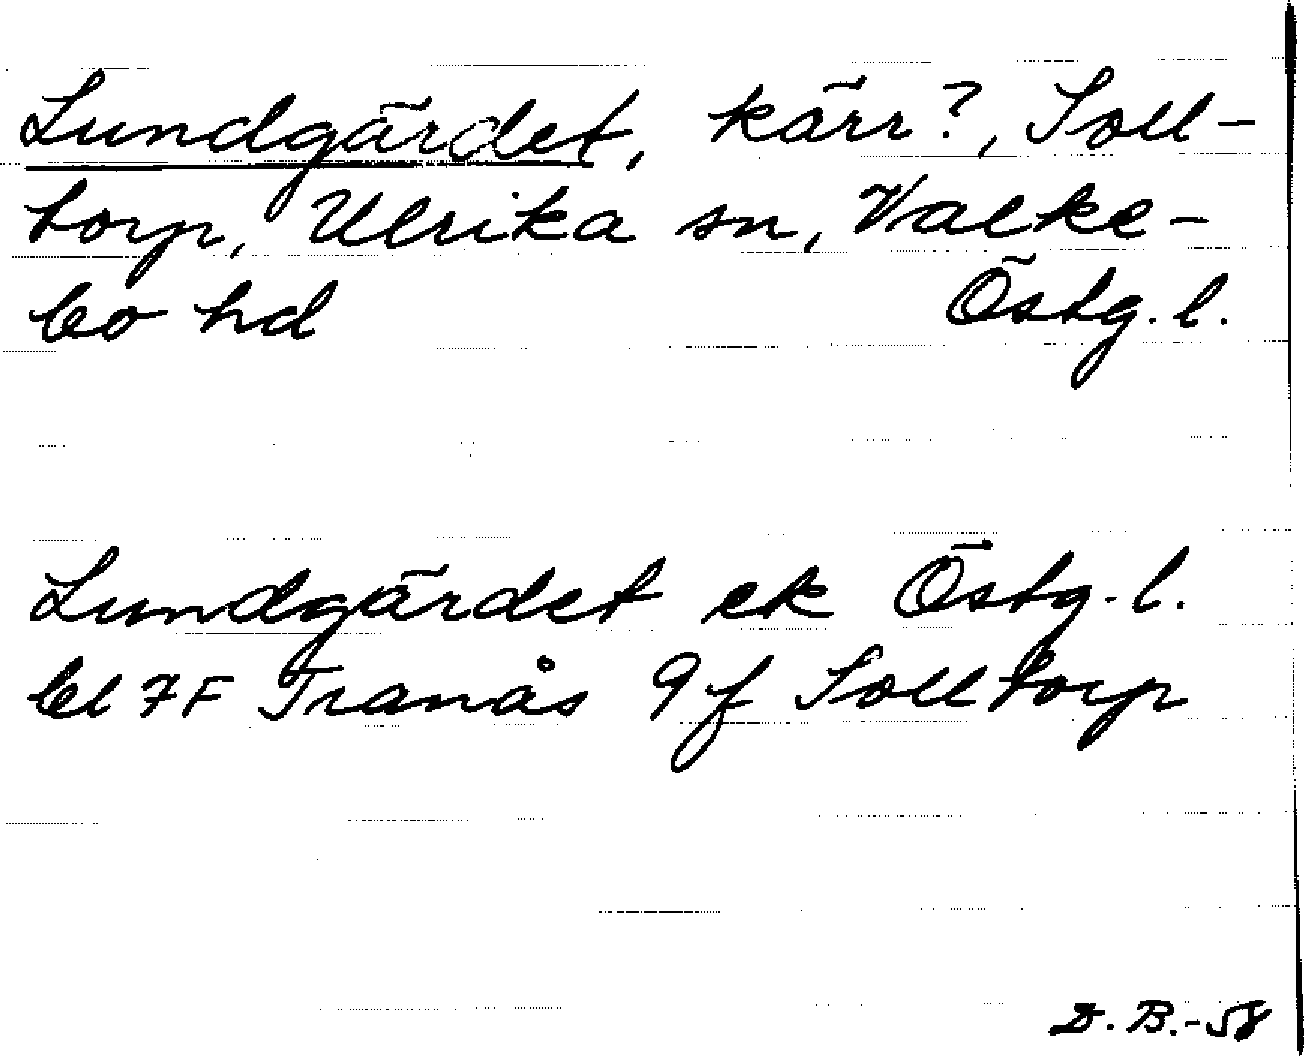 Lundgärdet, kärr?, Soll-
torp, Ulrika sn, Valke-
bo hd Östg. l.
Lundgärdet ek Östg. l.
bl 7F Tranås 9f Solltorp
D. B.-58